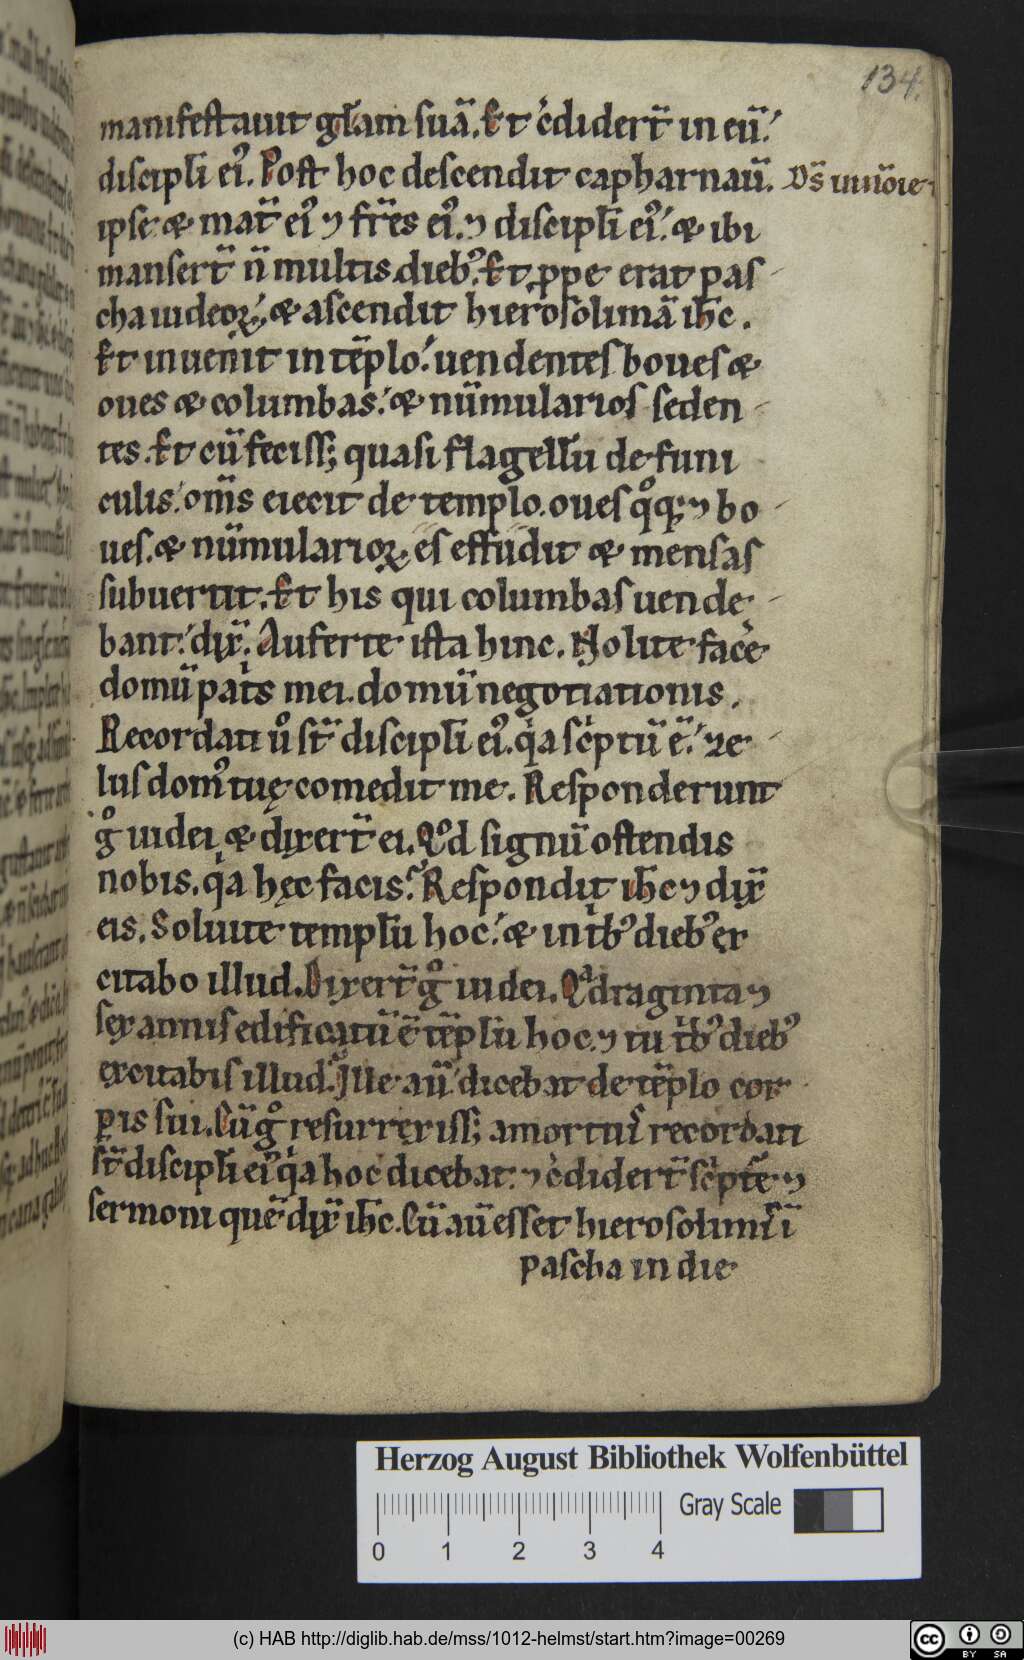 134.
manifestauit gl̄am suā. Et c̓dider̄t in eū.
discipl̄i ei᷒. Post hoc descendit capharnaū. Ds̄ in nōie
ipse. & mat̄ ei᷒ ⁊ fr̄es ei᷒. ⁊ discipl̄i ei᷒. & ibi
manser̄t n̄ multis dieb᷒. Et ꝓpe erat pas
cha iudeoꝝ, & ascendit hierosolimā ih̄c.
Et inuenit in tēplo uendentes boues &
oues & columbas. & nūmularios seden
tes. Et cū feciss; quasi flagell̄u de funi
culis om̄s eiecit de templo. oues qͦꝗꝫ ⁊ bo
ues. & nūmularioꝝ es effudit & mensas
subuertit. Et his qui columbas uendę
bant. dix̄. Auferte ista hinc. Nolite facͤe
domū pat̓s mei. domū negotiationis.
Recordati uͦ st̄ discipl̄i ei᷒. qͥa sc̓ptū ē. ze
lus dom᷒ tuę comedit me. Responderunt
gͦ iudei & dixer̄t ei. Qͦd signū ostendis
nobis. qͥa hęc facis. Respondit ih̄c ⁊ dix̄
eis. Soluite templ̄u hoc. & in tͥb᷒ dieb᷒ ex
citabo illud. Dixer̄t gͦ iudei. Qͣdraginta ⁊
sex annis edificatū ē tēpl̄u hoc. ⁊ tu tͥb᷒ dieb᷒
excitabis illud. Ille aū dicebat de tēplo cor
ꝑis sui. Cū gͦ resurrexiss; a mortui᷒ recordati
st̄ discipl̄i ei᷒ qͥa hoc dicebat. ⁊ c̓dider̄t sc̓pte᷒ ⁊
sermoni quē dix̄ ih̄c. Cū aū esset hierosolimi᷒ ī
pascha in die
Herzog August Bibliothek Wolfenbüttel
Gray Scale
0 1 2 3 4
(c) HAB http://diglib.hab.de/mss/1012-helmst/start.htm?image=00269
cc BY SA